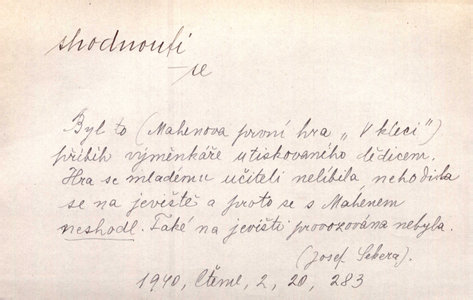 shodnouti
– se
Byl to (Mahenova první hra „V kleci")
příběh výměnkáře utiskovaného dědicem.
Hra se mladému učiteli nelíbila nehodila
se na jeviště a proto se s Mahenem
neshodl. Také na jevišti provozována nebyla.
(Josef Sebera).
1940, Čteme, 2, 20, 283